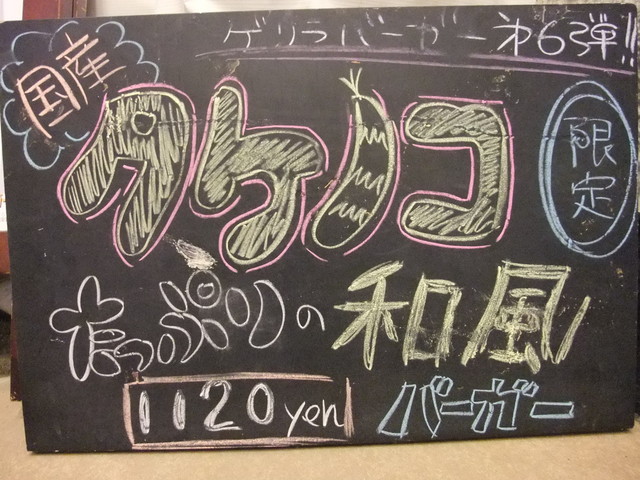 ゲリラバーガー第6弾!!
国産
タケノコ
限定
たっぷりの和風
1120yen
バーガー